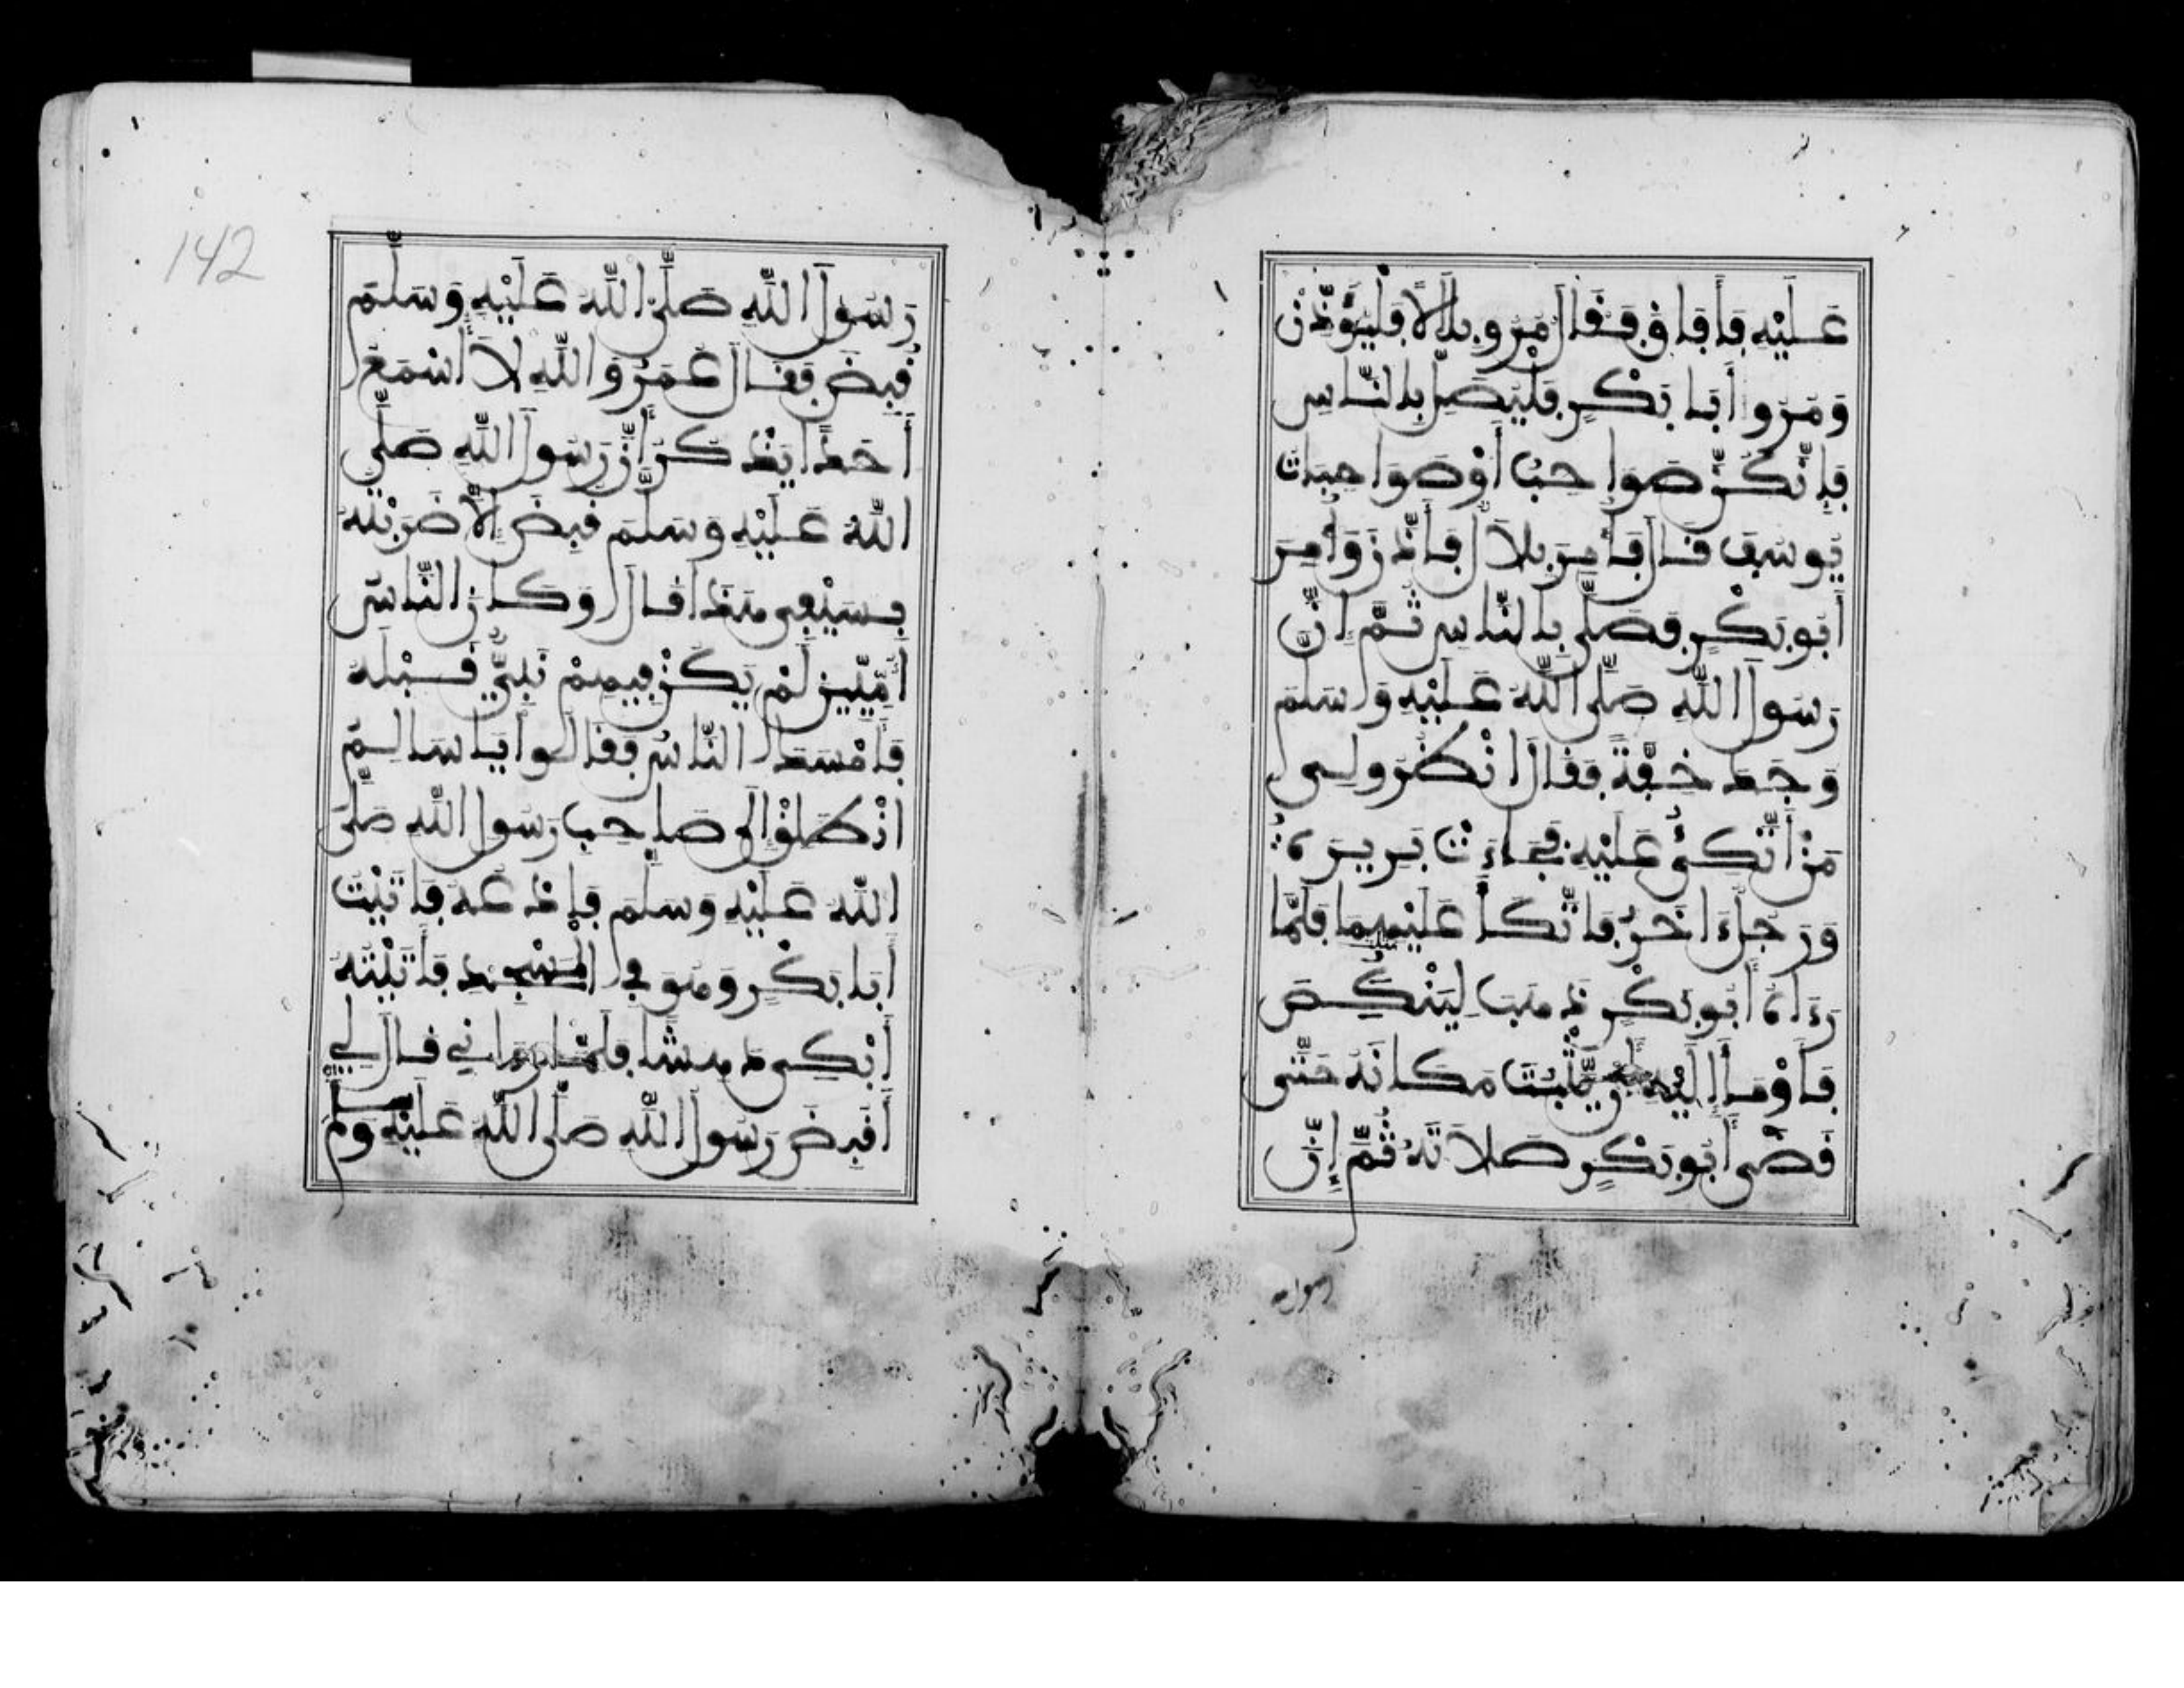 عَلَيْهِ فَأَفَاقَ فَقَالَ مُرُوا بِلَالًا فَلْيُؤَذِّنْ
وَمُرُوا أَبَا بَكْرٍ فَلْيُصَلِّ بِالنَّاسِ
فَإِنَّكُنَّ صَوَاحِبُ أَوْ صَوَاحِبَاتُ
يُوسُفَ قَالَ فَأُمِرَ بِلَالٌ فَأَذَّنَ وَأُمِرَ
أَبُو بَكْرٍ فَصَلَّى بِالنَّاسِ ثُمَّ إِنَّ
رَسُولَ اللَّهِ صَلَّى اللَّهُ عَلَيْهِ وَسَلَّمَ
وَجَدَ خِفَّةً فَقَالَ انْظُرُوا لِي
مَنْ أَتَّكِئُ عَلَيْهِ فَجَاءَتْ بَرِيرَةُ
وَرَجُلٌ ءَاخَرُ فَاتَّكَأَ عَلَيْهِمَا فَلَمَّا
رَءَاهُ أَبُو بَكْرٍ ذَهَبَ لِيَنْكُصَ
فَأَوْمَأَ إِلَيْهِ أَنْ يَثْبُتَ مَكَانَهُ حَتَّى
قَضَى أَبُو بَكْرٍ صَلَاتَهُ ثُمَّ إِنَّ
رسول
142
رَسُولَ اللَّهِ صَلَّى اللَّهُ عَلَيْهِ وَسَلَّمَ
قُبِضَ فَقَالَ عُمَرُ وَاللَّهِ لَا أَسْمَعُ
أَحَدًا يَذْكُرُ أَنَّ رَسُولَ اللَّهِ صَلَّى
اللَّهُ عَلَيْهِ وَسَلَّمَ قُبِضَ إِلَّا ضَرَبْتُهُ
بِسَيْفِي هَذَا قَالَ وَكَانَ النَّاسُ
أُمِّيِّينَ لَمْ يَكُنْ فِيهِمْ نَبِيٌّ قَبْلَهُ
فَأَمْسَكَ النَّاسُ فَقَالُوا يَا سَالِمُ
انْطَلِقْ إِلَى صَاحِبِ رَسُولِ اللَّهِ صَلَّى
اللَّهُ عَلَيْهِ وَسَلَّمَ فَادْعُهُ فَأَتَيْتُ
أَبَا بَكْرٍ وَهُوَ فِي الْمَسْجِدِ فَأَتَيْتُهُ
أَبْكِي دَهِشًا فَلَمَّا رَءَانِي قَالَ لِي
أَقُبِضَ رَسُولُ اللَّهِ صَلَّى اللَّهُ عَلَيْهِ وَسَلَّمَ